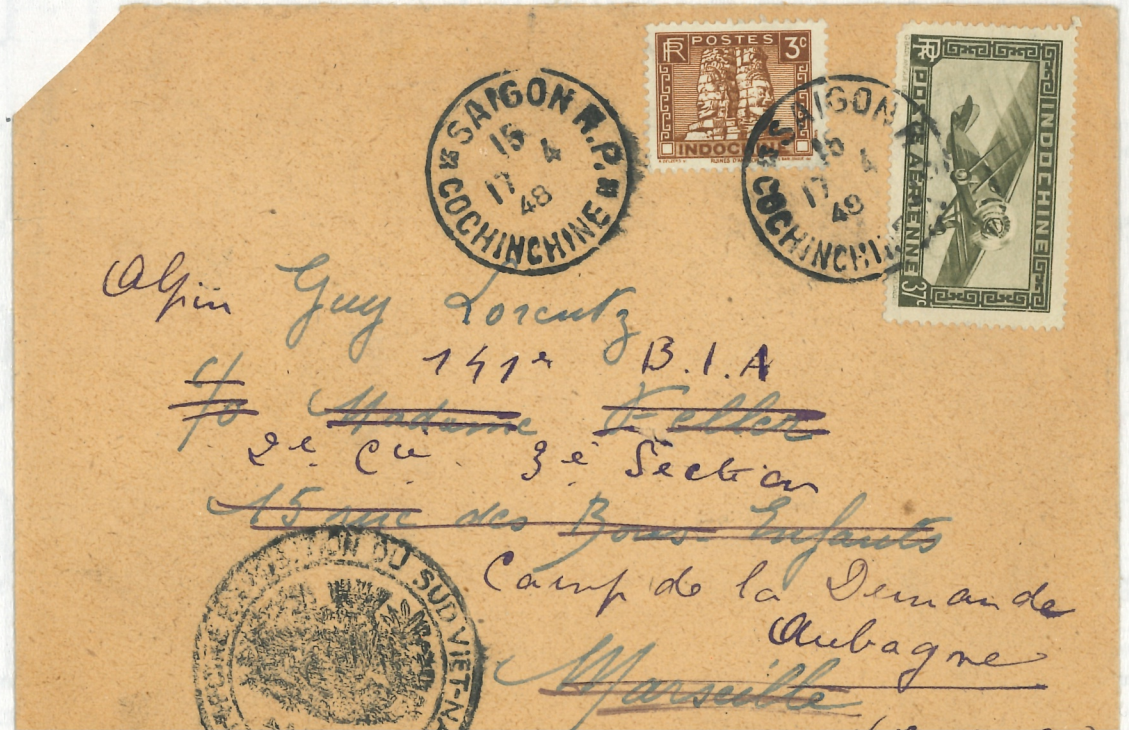 RF POSTES 3c
INDOCHINE
RF POSTE AÉRIENNE 37c
INDOCHINE
SAIGON R.P.
15 4
17
48
COCHINCHINE
SAIGON
15 4
17
48
COCHINCHINE
Alpin Guy Lorentz
141e B.I.A
c/o Madame Feller
2e Cie 3e Section
15 rue des Bons Enfants
Camp de la Demande
Aubagne
Marseille
DU SUD VIET-NA